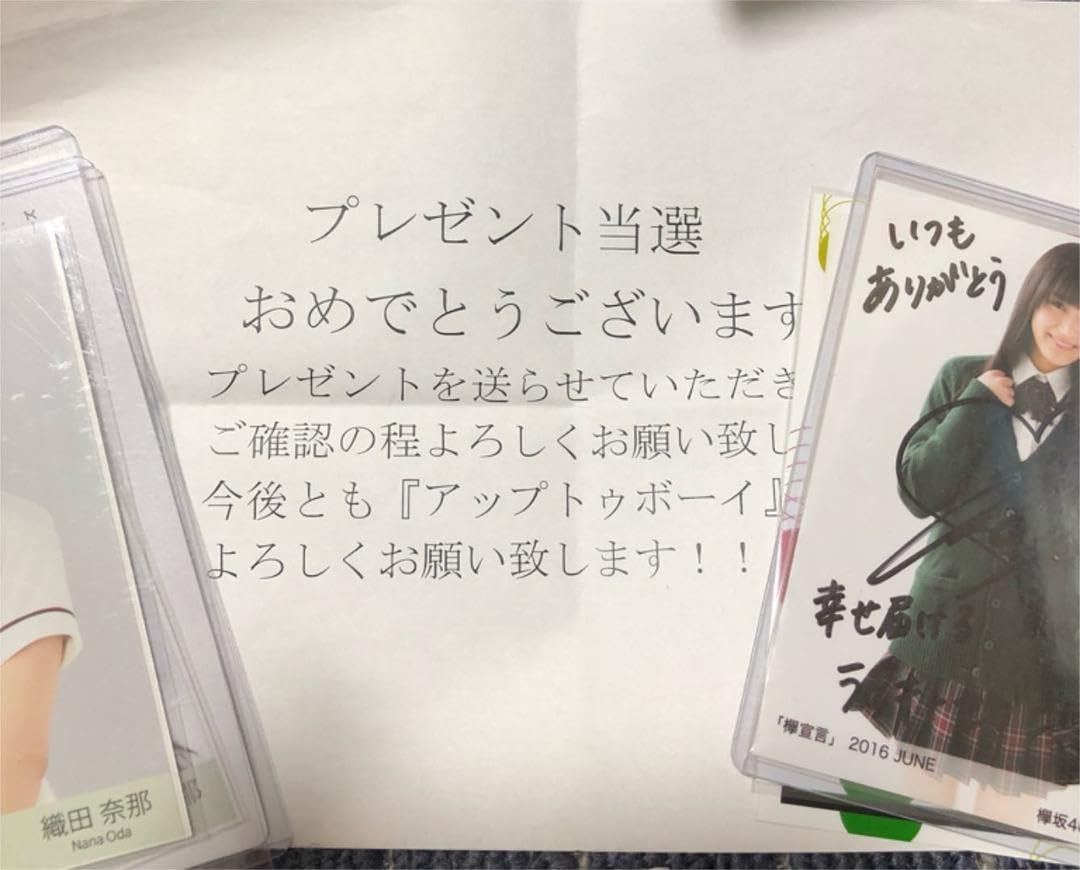 プレゼント当選
おめでとうございます
プレゼントを送らせていただき
ご確認の程よろしくお願い致し
今後とも『アップトゥボーイ』
よろしくお願い致します！！
織田 奈那
Nana Oda
那
いつも
ありがとう
幸せ届ける
「欅宣言」 2016 JUNE
欅坂4